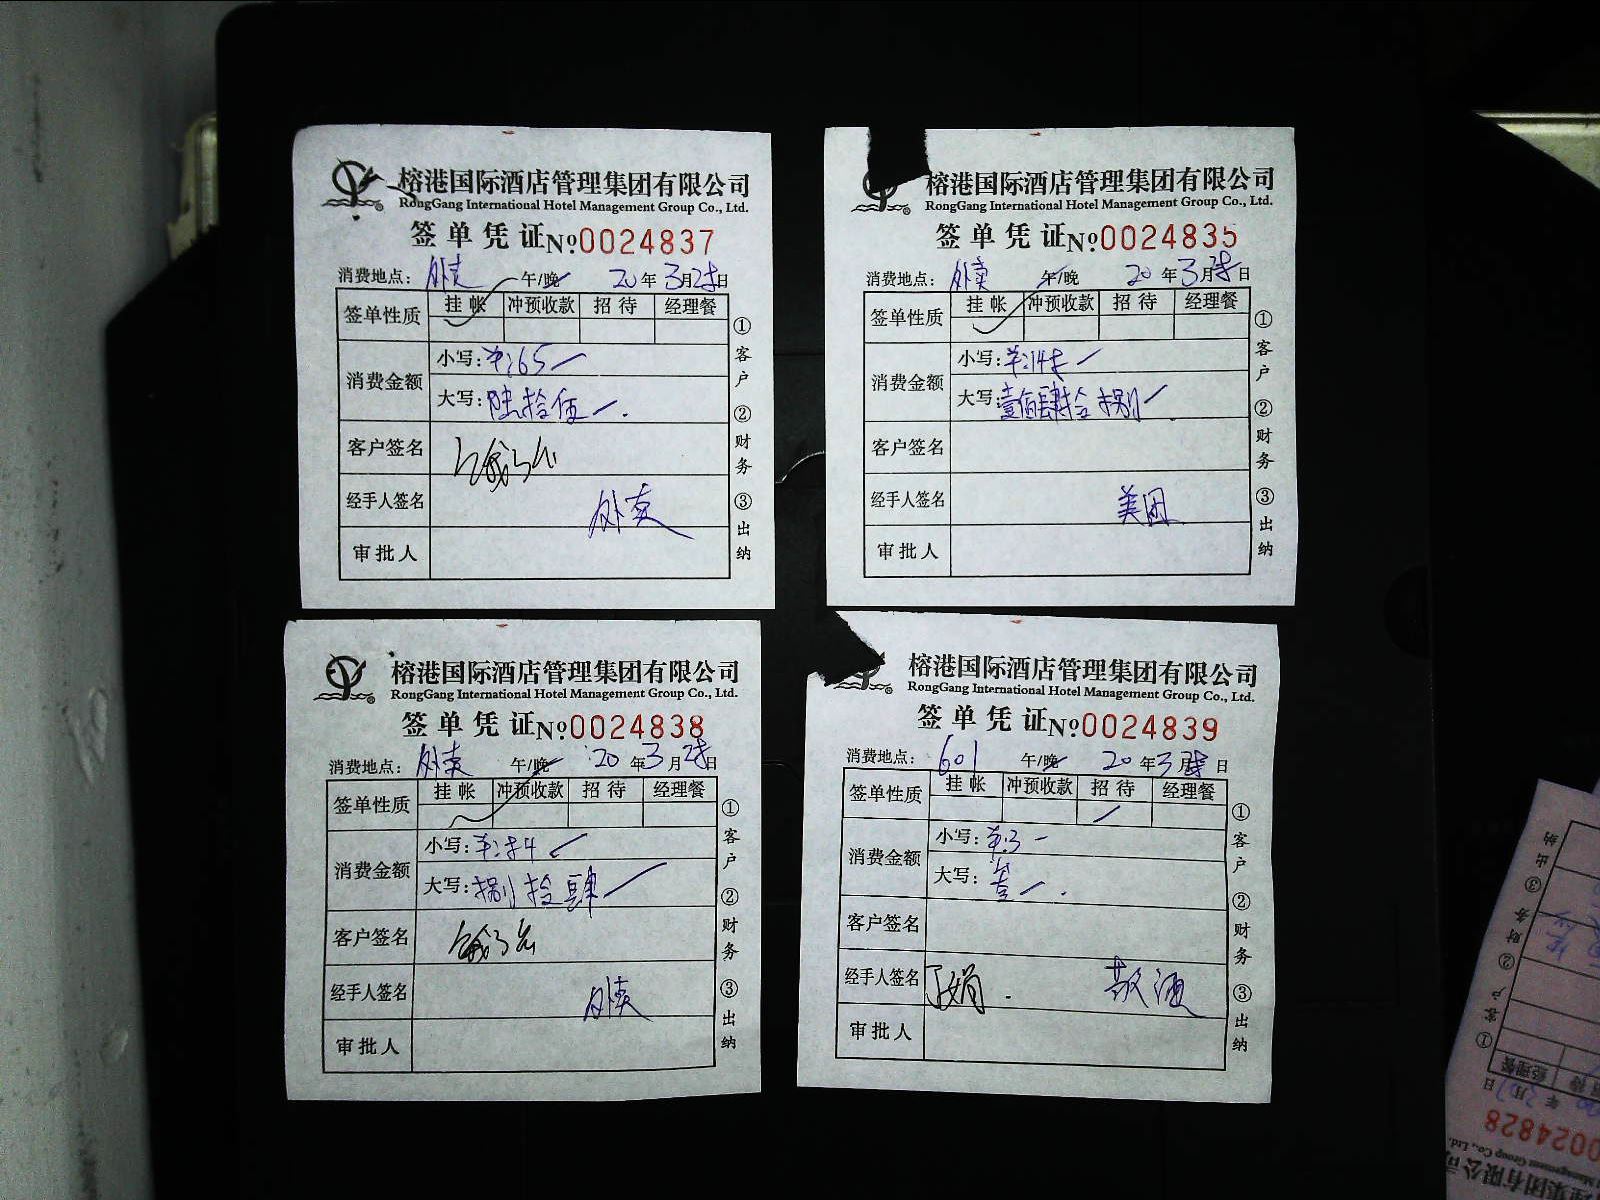 榕港国际酒店管理集团有限公司
RongGang International Hotel Management Group Co., Ltd.
签单凭证 №0024837
消费地点: 外卖 午/晚 20年3月28日
签单性质 挂帐 冲预收款 招待 经理餐
消费金额 小写: ¥:65
大写: 陆拾伍
客户签名
经手人签名 外卖
审批人
①客户 ②财务 ③出纳
榕港国际酒店管理集团有限公司
RongGang International Hotel Management Group Co., Ltd.
签单凭证 №0024835
消费地点: 外卖 午/晚 20年3月28日
签单性质 挂帐 冲预收款 招待 经理餐
消费金额 小写: ¥:148
大写: 壹佰肆拾捌
客户签名
经手人签名 美团
审批人
①客户 ②财务 ③出纳
榕港国际酒店管理集团有限公司
RongGang International Hotel Management Group Co., Ltd.
签单凭证 №0024838
消费地点: 外卖 午/晚 20年3月28日
签单性质 挂帐 冲预收款 招待 经理餐
消费金额 小写: ¥:84
大写: 捌拾肆
客户签名
经手人签名 外卖
审批人
①客户 ②财务 ③出纳
榕港国际酒店管理集团有限公司
RongGang International Hotel Management Group Co., Ltd.
签单凭证 №0024839
消费地点: 601 午/晚 20年3月28日
签单性质 挂帐 冲预收款 招待 经理餐
消费金额 小写: ¥:3
大写:
客户签名
经手人签名 敬酒
审批人
①客户 ②财务 ③出纳
0024828
①客户 ②财务 ③出纳
经理餐